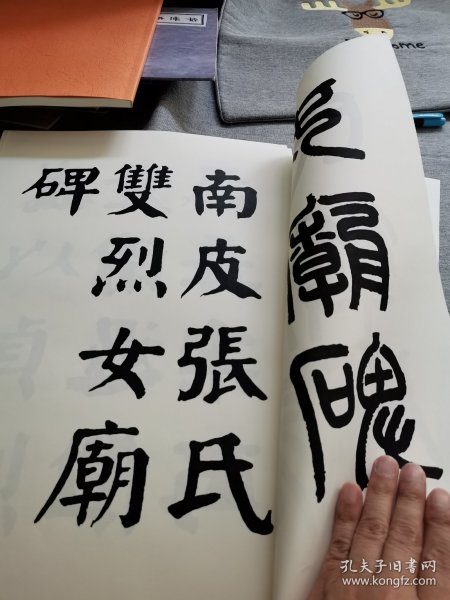 南皮張氏
雙烈女廟
碑
廟碑
孔夫子旧书网
www.kongfz.com